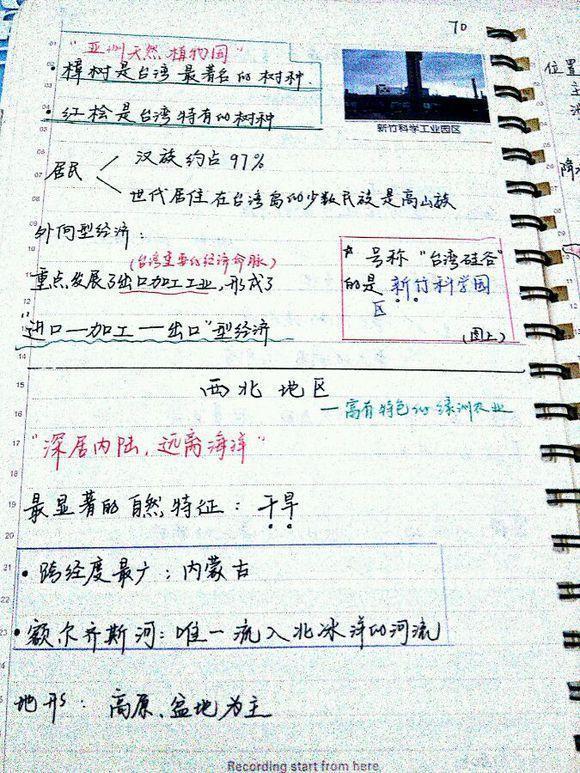 70
"亚洲天然植物园"
• 樟树是台湾最著名的树种.
• 红桧是台湾特有的树种
新竹科学工业园区
居民
汉族约占97%
世代居住在台湾岛的少数民族是高山族
外向型经济:
(台湾重要的经济命脉)
重点发展了出口加工工业,形成了
"进口—加工—出口"型经济
* 号称"台湾硅谷"
的是新竹科学园
区
(图上)
西北地区
—富有特色的绿洲农业
"深居内陆,远离海洋"
最显著的自然特征:干旱
• 跨经度最广:内蒙古
• 额尔齐斯河:唯一流入北冰洋的河流
地形:高原、盆地为主
Recording start from here
位置
01
02
03
04
05
06
07
08
09
10
11
12
13
14
15
16
17
18
19
20
21
22
23